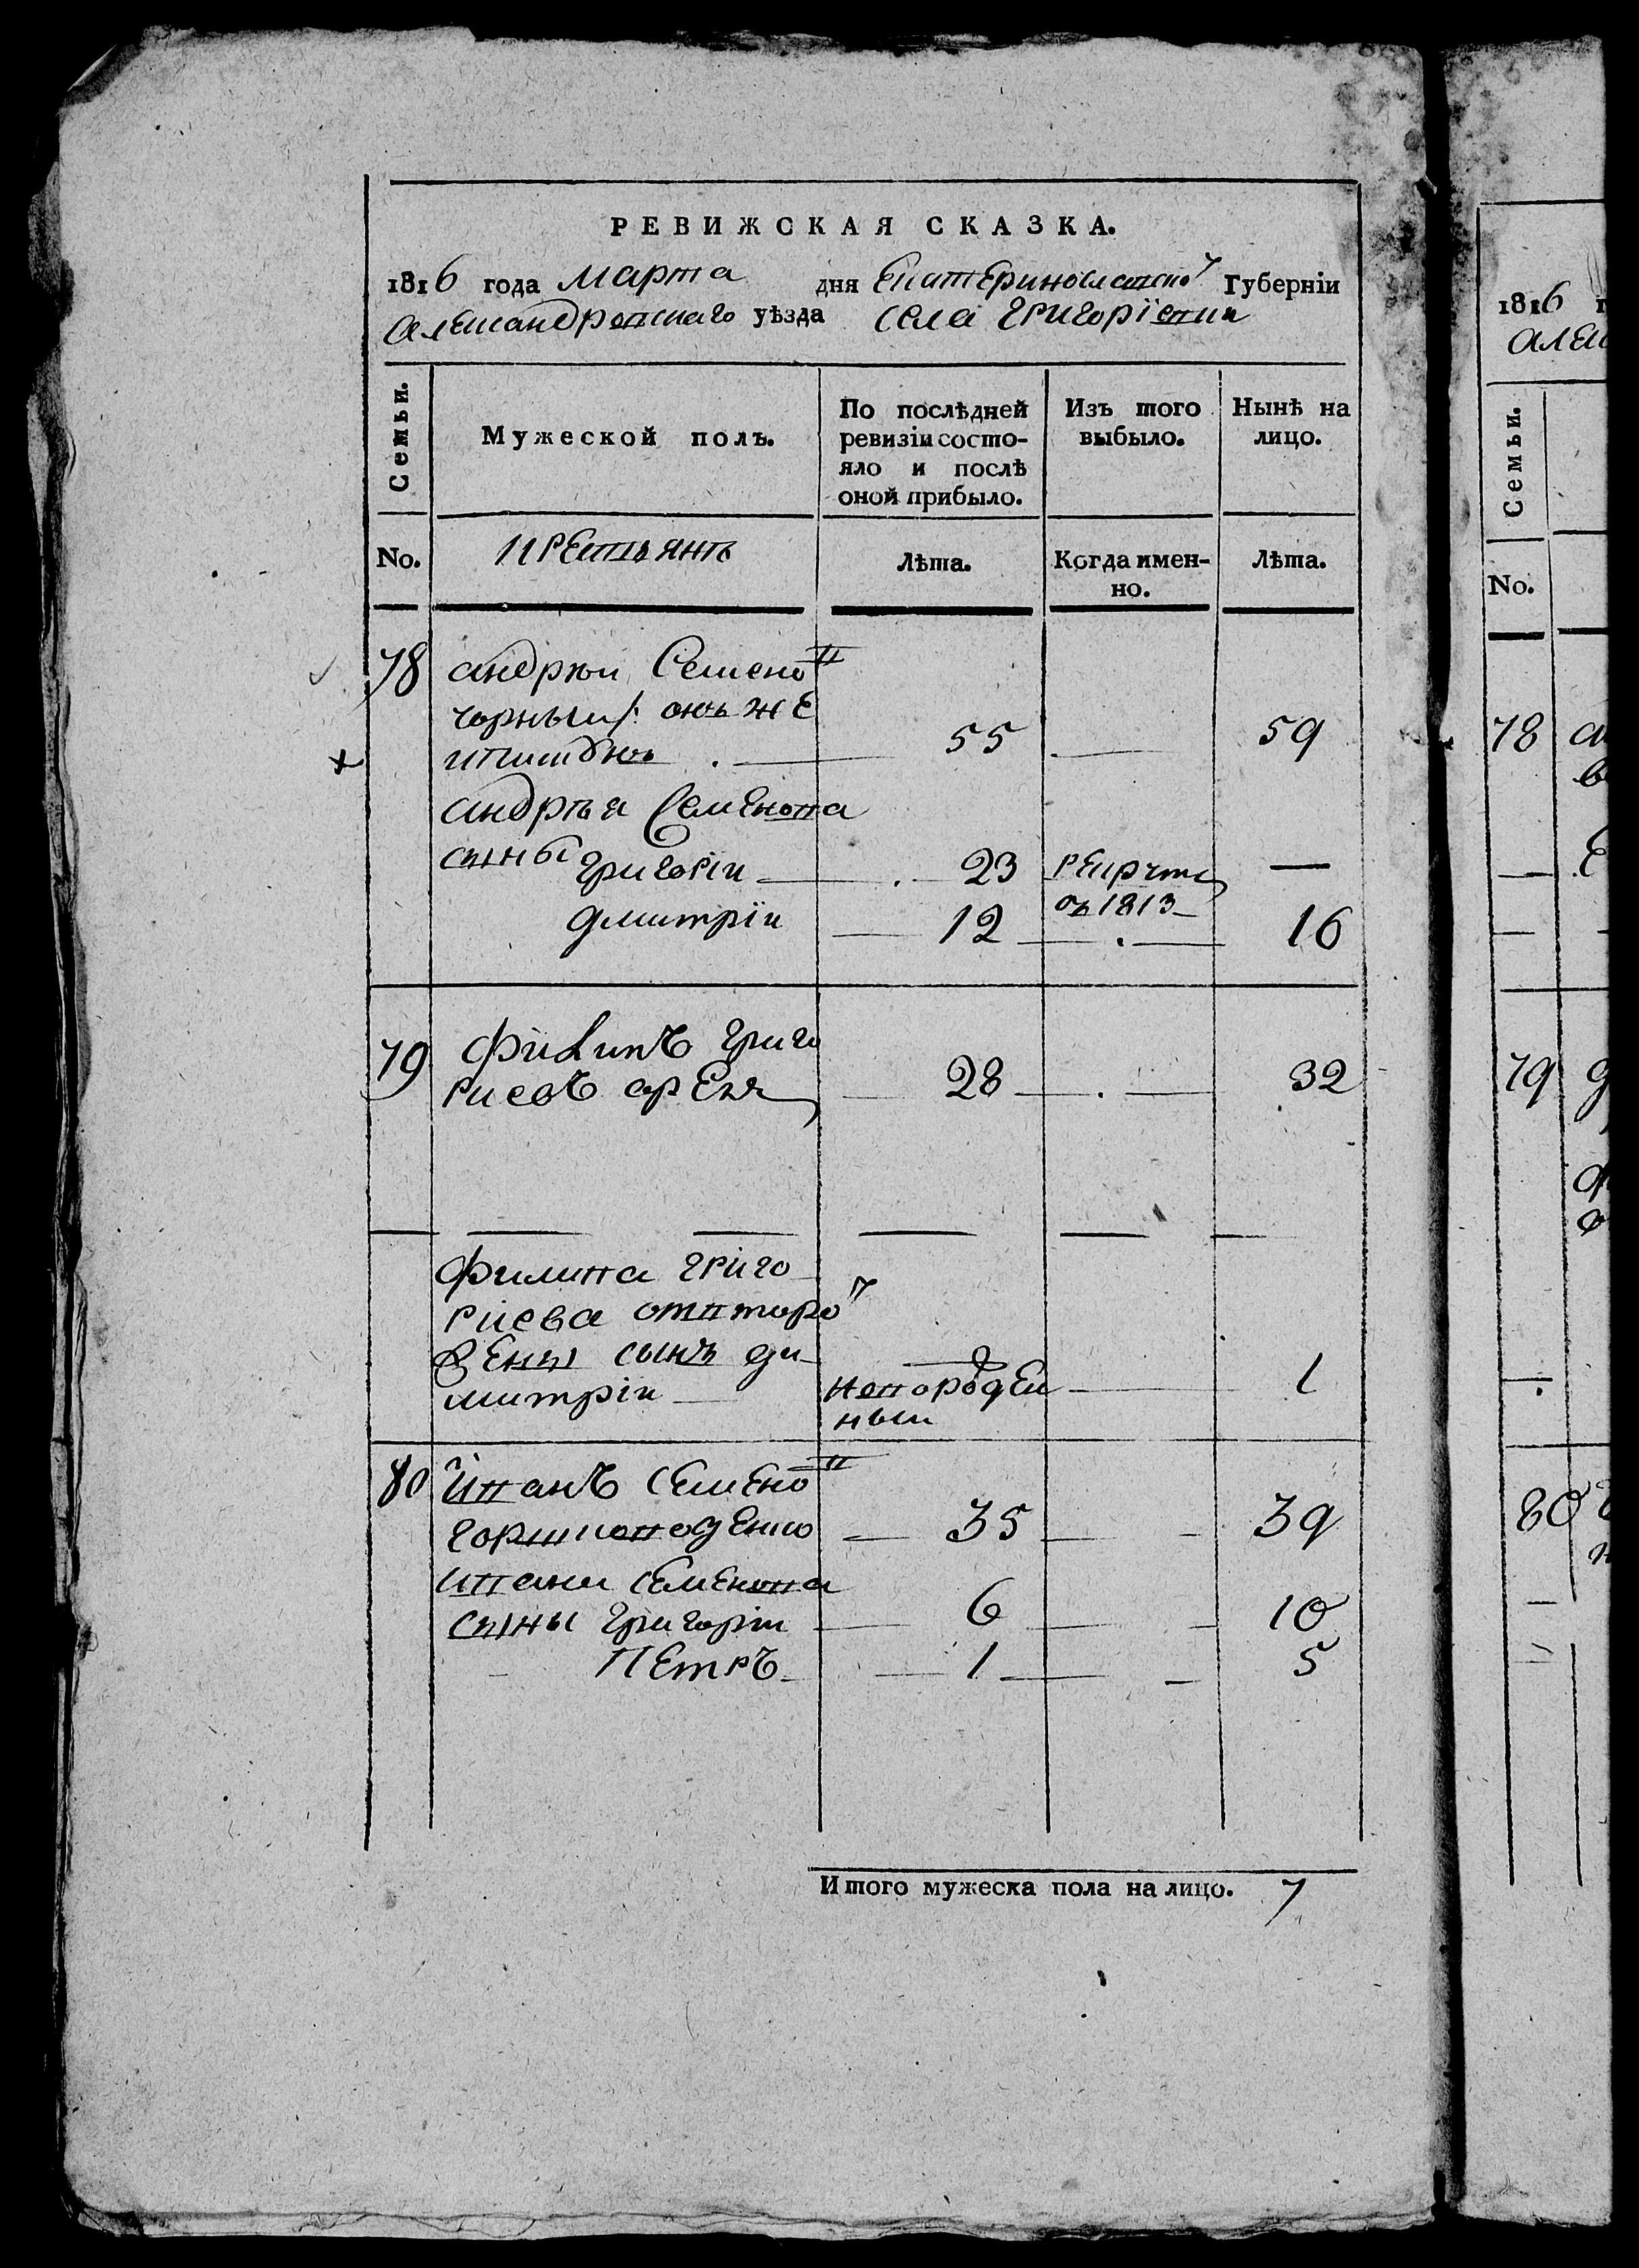 РЕВИЖСКАЯ СКАЗКА.
1816 года марта дня Екатеринославской Губерніи
Александровскаго уѣзда села Григорїевки
Семьи.
Мужеской полъ.
По послѣдней ревизіи состо-
яло и послѣ
оной прибыло.
Изъ того
выбыло.
Нынѣ на
лицо.
No.
крестьянъ
Лѣта.
Когда имен-
но.
Лѣта.
78 андрѣй Семено въ
чорный /: онъ же
55 59
андрѣя Семенова
сыны григоріи 23 рекрутъ —
въ 1813
Дмитрїи 12 16
79 Филипъ григо
риевъ 28 32
Филипа григо
риева отвторой
жены сынъ ди
митріи новорожден
ныи 1
80 Иванъ Семено въ
35 39
ивана Семенова
сыны григоріи 6 10
Петръ 1 5
Итого мужеска пола на лицо. 7
1816 г
алек
Семьи.
No.
78
79
80